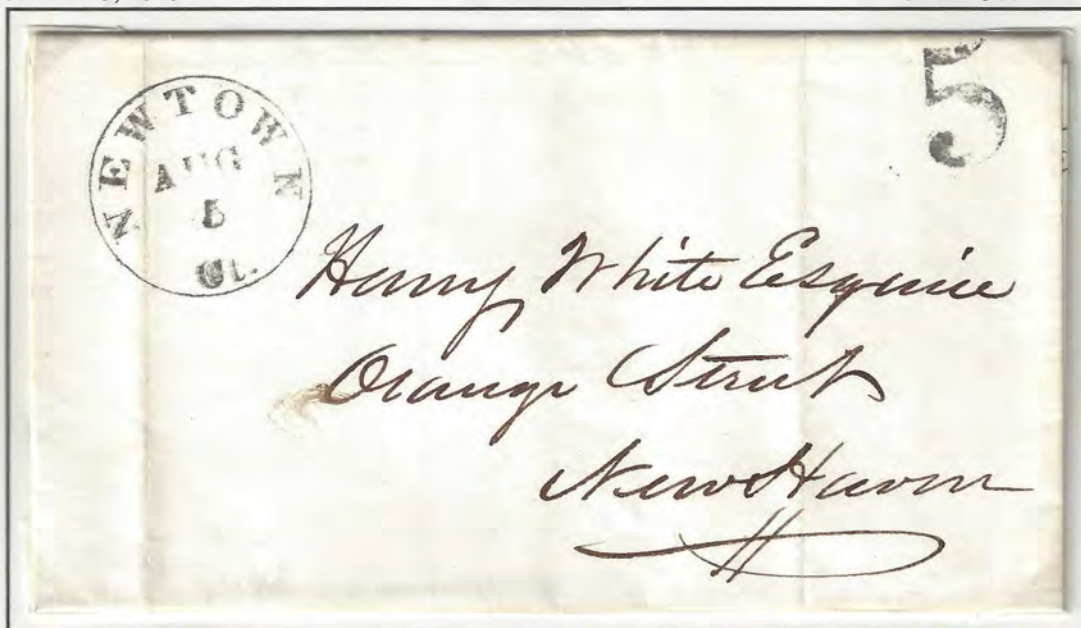 NEWTOWN
AUG
5
Ct.
5
Henry White Esquire
Orange Street
New Haven